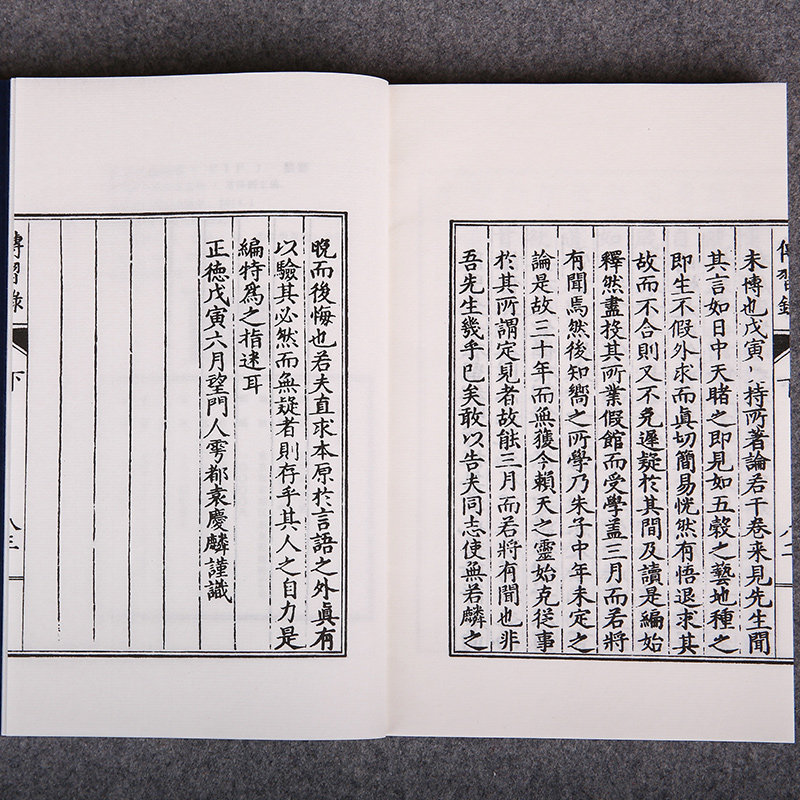 未博也戊寅八持所著論若干卷来見先生聞
其言如日中天睹之即見如五糓之藝地種之
即生不假外求而真切簡易恍然有悟退求其
故而不合則又不免遲疑於其間及讀是編始
釋然盡投其所業假館而受學盖三月而若將
有聞焉然後知嚮之所學乃朱子中年未定之
論是故三十年而無獲今賴天之靈始克從事
於其所謂定見者故能三月而若將有聞也非
吾先生幾乎已矣敢以告夫同志使無若麟之
傳習錄
下
晚而後悔也若夫直求本原於言語之外真有
以驗其必然而無疑者則存乎其人之自力是
編特為之指迷耳
正德戊寅六月望門人雩都袁慶麟謹識
傳習錄
下
八三